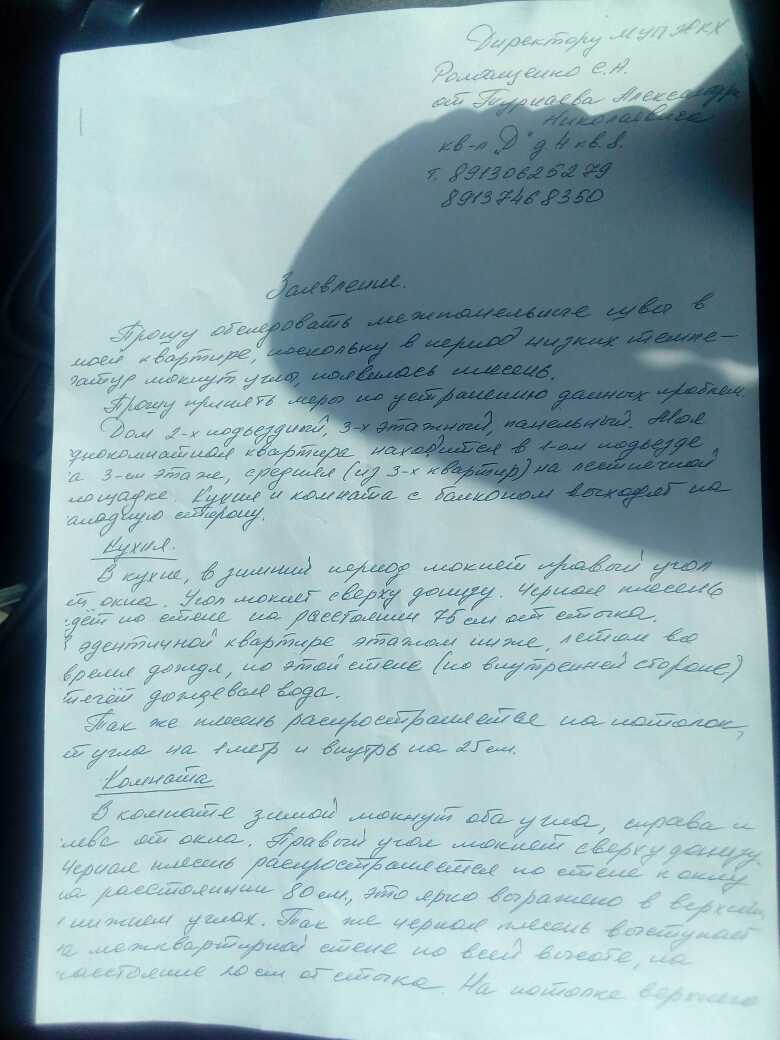 Директору МУП ЖКХ
Ромащенко С.А.
от Турнаева Александра
Николаевича
кв-л "Д" д 4 кв. 8.
т. 89130625279
89137468350
Заявление.
Прошу обследовать межпанельные швы в
моей квартире, поскольку в период низких темпе-
ратур мокнут углы, появилась плесень.
Прошу принять меры по устранению данных проблем.
Дом 2-х подъездный, 3-х этажный, панельный. Моя
однокомнатная квартира находится в 1-ом подъезде
а 3-ем этаже, средняя (из 3-х квартир) на лестничной
площадке. Кухня и комната с балконом выходят на
западную сторону.
Кухня.
В кухне, в зимний период мокнет правый угол
от окна. Угол мокнет сверху донизу. Черная плесень
идёт по стене на расстоянии 75 см от стыка.
В эдентичной квартире этажом ниже, летом во
время дождя, по этой стене (по внутренней стороне)
течёт дождевая вода.
Так же плесень распространяется на потолок,
от угла на 1 метр и внутрь на 25 см.
Комната
В комнате зимой мокнут оба угла, справа и
слева от окна. Правый угол мокнет сверху донизу.
Черная плесень распространяется по стене к окну
на расстоянии 80 см., это ярко выражено в верхнем
и нижнем углах. Так же черная плесень выступает
на межквартирной стене по всей высоте, на
расстояние 20 см от стыка. На потолке верхнего